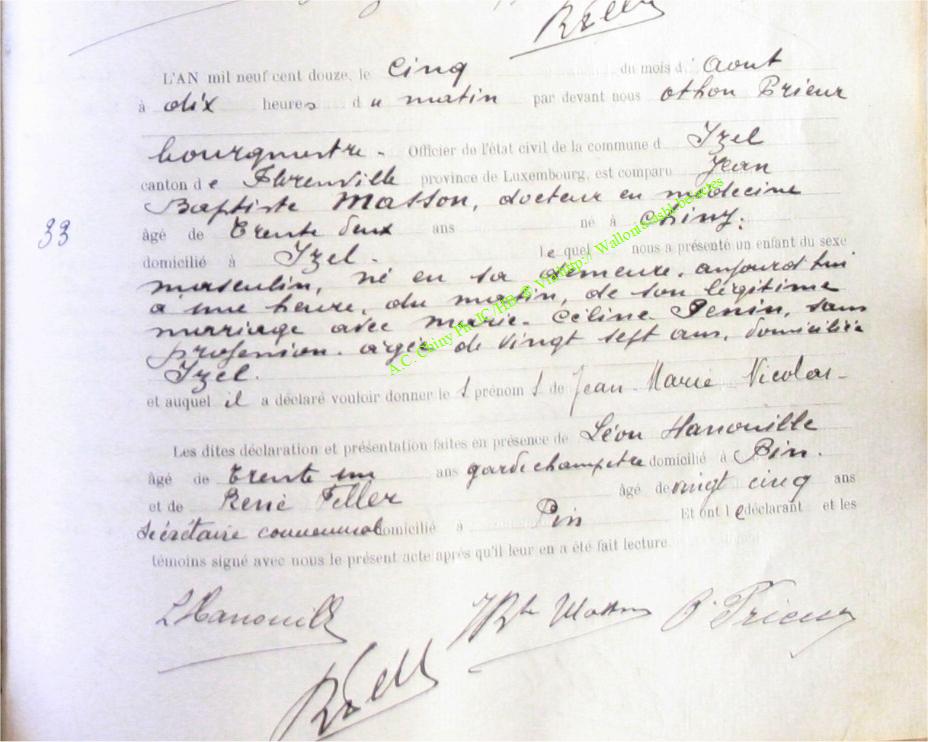 L'AN mil neuf cent douze, le Cinq du mois d' Aout
à dix heures du matin par devant nous Othon Prieur
bourgmestre. Officier de l'état civil de la commune d Izel
canton de Florenville province de Luxembourg, est comparu Jean
Baptiste Masson, docteur en médecine
33
âgé de Trente deux ans né à Chiny.
domicilié à Izel. Le quel nous a présenté un enfant du sexe
masculin, né en sa demeure, aujourd'hui
à une heure, du matin, de son légitime
marriage avec Marie-Céline Penin, sans
profession. agée de Vingt sept ans, domiciliée
Izel.
et auquel il a déclaré vouloir donner le s prénom s de Jean-Marie Nicolas-
Les dites déclaration et présentation faites en présence de Léon Hanouille
âgé de trente un ans garde champetre domicilié à Pin.
et de René Feller âgé de vingt cinq ans
Secrétaire communal domicilié à Pin Et ont le déclarant et les
témoins signé avec nous le présent acte après qu'il leur en a été fait lecture.
L Hanouille JBte Masson O. Prieur
A.C. Chiny